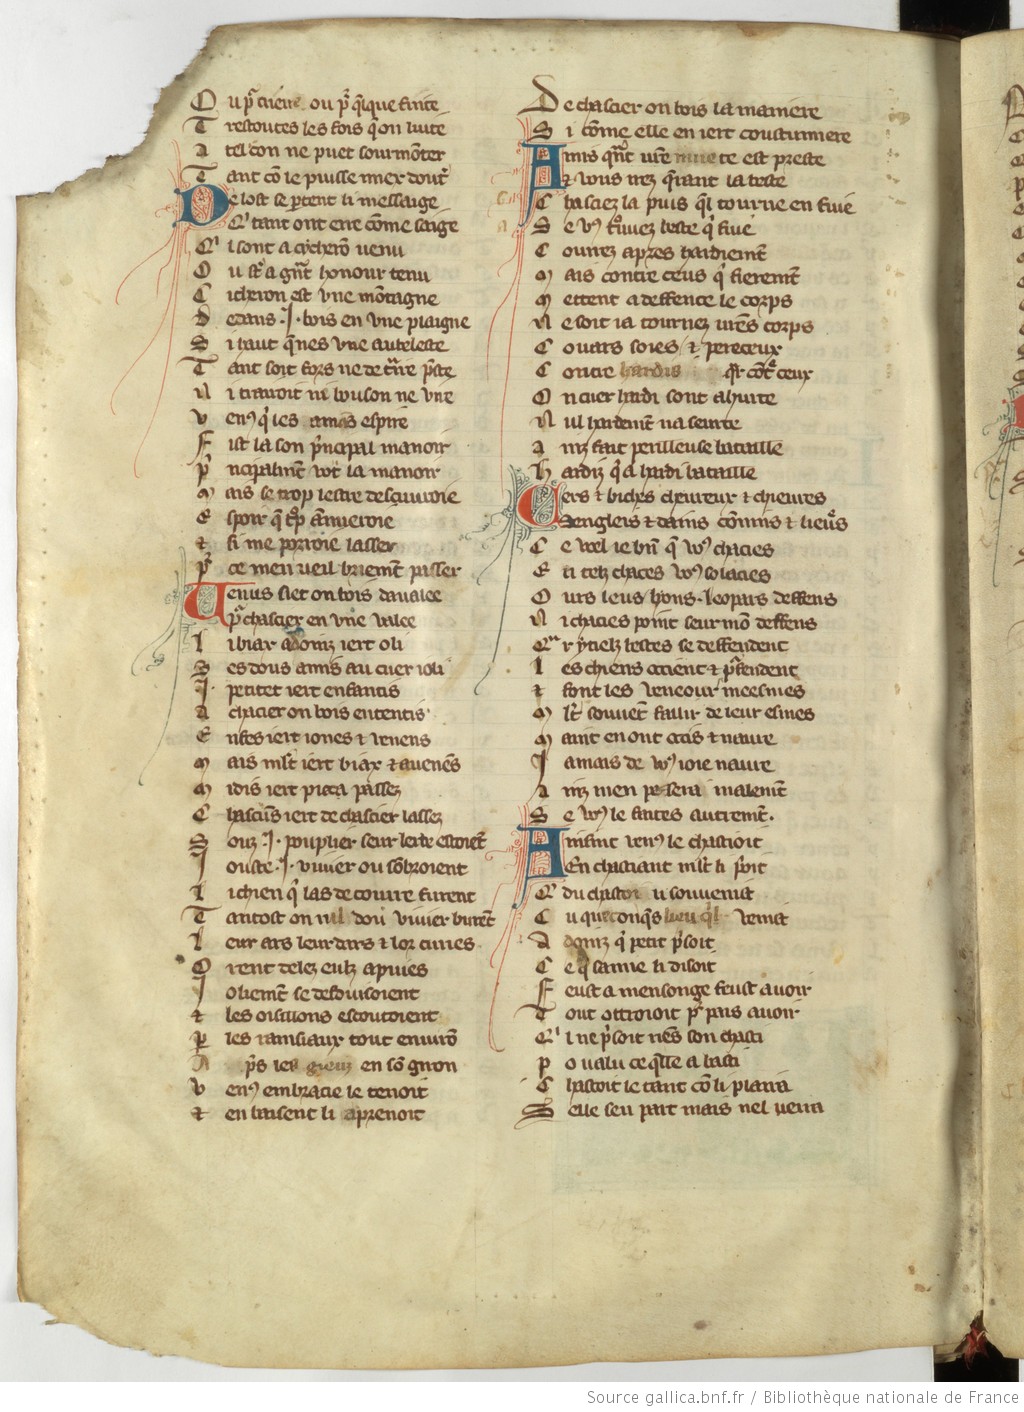 Ou p̃ criem̃ ou p̃ q̃lque fuite
Trestoutes les fois q̃ on luite
A tel lon ne puet sourmõter
Tant cõ le puisse mex dout̃
De lost se p̃tent li messaige
Q' tant ont erre cõme saige
Q' i sont a cycherõ uenu
Ou st̃ a gñt honour tenu
Cicheron est vne mõtagne
Dedans .I. bois en vne plaigne
Si haut q̃ nes vne aubeleste
Tant soit fors ne de t̃ire p̃ste
Ni trairoit ni bouson ne vire
Ven⁹ q̃ les amãs espire
Fist la son p̃ncipal manoir
P̃ncipalmt̃ vot la manoir
Mais se trop lestre descriuoie
Espoir q̃ t̃p ãnuieroie
⁊ si me porroie lasser
P̃ ce men ueil briemt̃ passer
Venus siet on bois daualee
P̃ chascier en vne valee
Li biax adonis iert o li
Ses dous amis au cuer ioli
.I. petitet iert enfantis
A chacier on bois ententis
Enfes iert iones ⁊ venens
Mais ml̃t iert biax ⁊ auenẽs
Midis iert pieca passez
Chascũs iert de chascier lassez
Souz .I. pouplier seur lerbe estoiẽt
Iouste .I. viuier ou sõbroient
Li chien q̃ las de courre furent
Tantost on ruissel dou viuier burẽt
Leur ars leur dars ⁊ lor cuires
Orent delez eulz apuies
Ioliemt̃ se deduisoient
⁊ les oisillons escoutoient
Par les rainsiaux tout enuirõ
Ap̃s les gieuz en sõ giron
Ven⁹ embracie le tenoit
⁊ en baisent li aprenoit
De chascier on bois la maniere
Si cõme elle en iert coustumiere
Amis qñt v̄re mute est preste
⁊ vous irez q̃rant la beste
Chaciez la puis q̃l tourne en fuie
Se v⁹ trouuez beste q̃ fuie
Courez apres hardiemt̃
Mais contre ceus q̃ fieremt̃
Mettent a deffence le corps
Ne soit ia tournez v̄res corps
Couars soies ⁊ pereceux
Contre hardis q̃r cõt̃ ceux
On cuer hardi sont ahurte
Nul hardemt̃ na seurte
Ainz fait perilleuse bataille
Hardiz q̃ a hardi bataille
Cers ⁊ biches cheureux ⁊ chieures
Senglers ⁊ dains cõnins ⁊ lieur̃s
Ce voel ie bñ q̃ v⁹ chacies
En telz chaces v⁹ solacies
Ours leus lyons leopars deffens
Ni chacies point seur mõ deffens
Q̃r ytielz bestes se deffendent
Les chiens occient ⁊ p̃fendent
⁊ font les veneours meesmes
Ml̃t souuẽt faillir de leur esmes
Maint en ont occis ⁊ naure
Iamais de v⁹ ioie naure
Ainz men pesera malemt̃
Se v⁹ le faites autremt̃.
Ainsint ven⁹ le chastioit
En chastiant ml̃t li p̃oit
Q' du chastoi li souuenist
Cu quelconq̃s lieu q̃l venist
Adoniz q̃ petit p̃soit
Ce q̃ samie li disoit
Feust a mensonge feust a uoir
Tout ottroioit p̃ pais auoir
Q' l ne p̃soit riẽs son chasti
Po valu ce q̃lle a basti
Chastoit le tant cõ li plaira
Selle sen part mais nel uerra